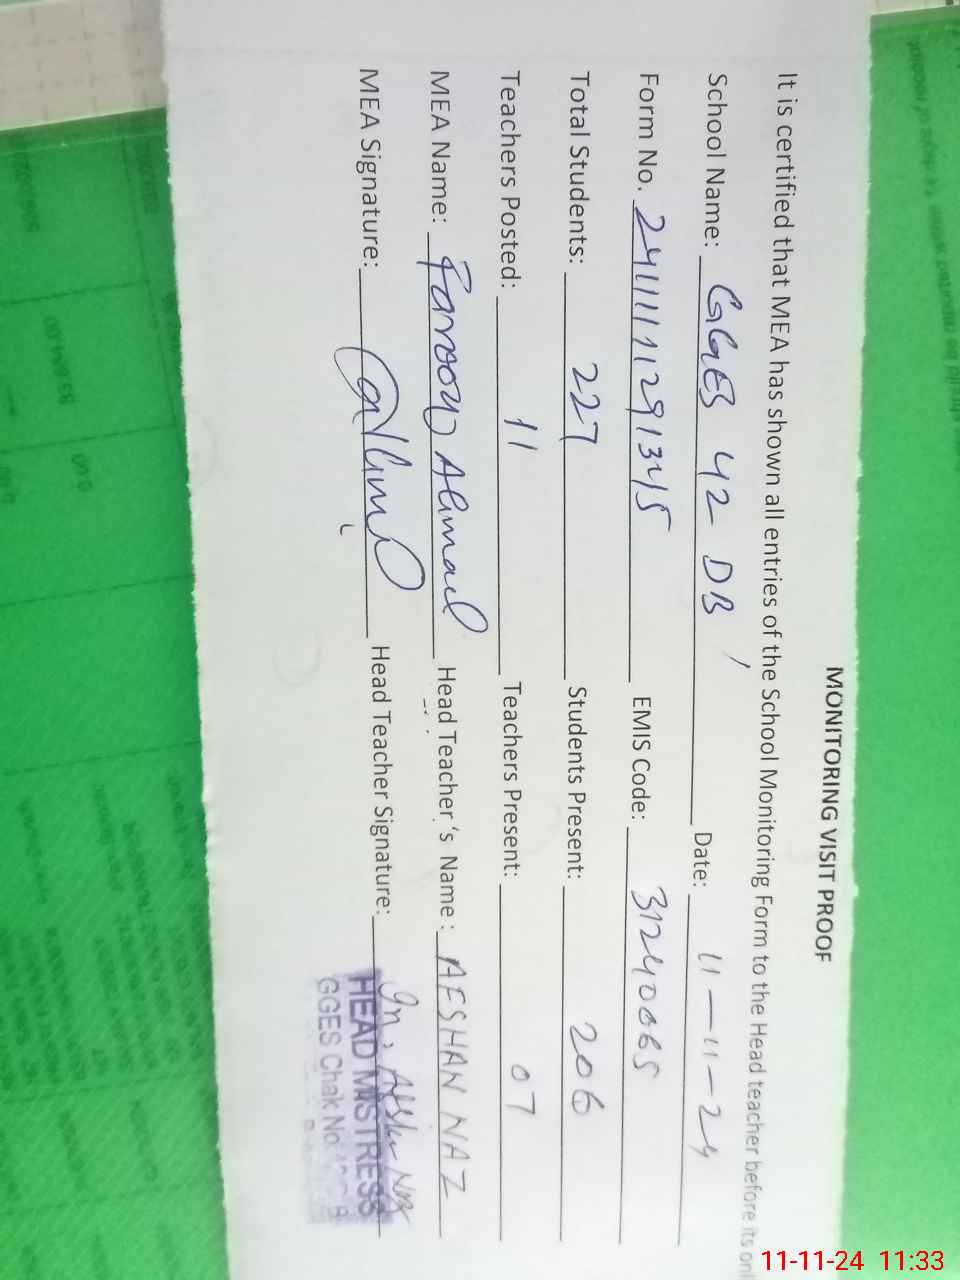 MONITORING VISIT PROOF
It is certified that MEA has shown all entries of the School Monitoring Form to the Head teacher before its onl
School Name: GGES 42 DB Date: 11-11-24
Form No. 241111291345 EMIS Code: 31240065
Total Students: 227 Students Present: 206
Teachers Posted: 11 Teachers Present: 07
MEA Name: Farooq Ahmad Head Teacher's Name: AFSHAN NAZ
MEA Signature: Head Teacher Signature:
HEAD MISTRESS
GGES Chak No
11-11-24 11:33